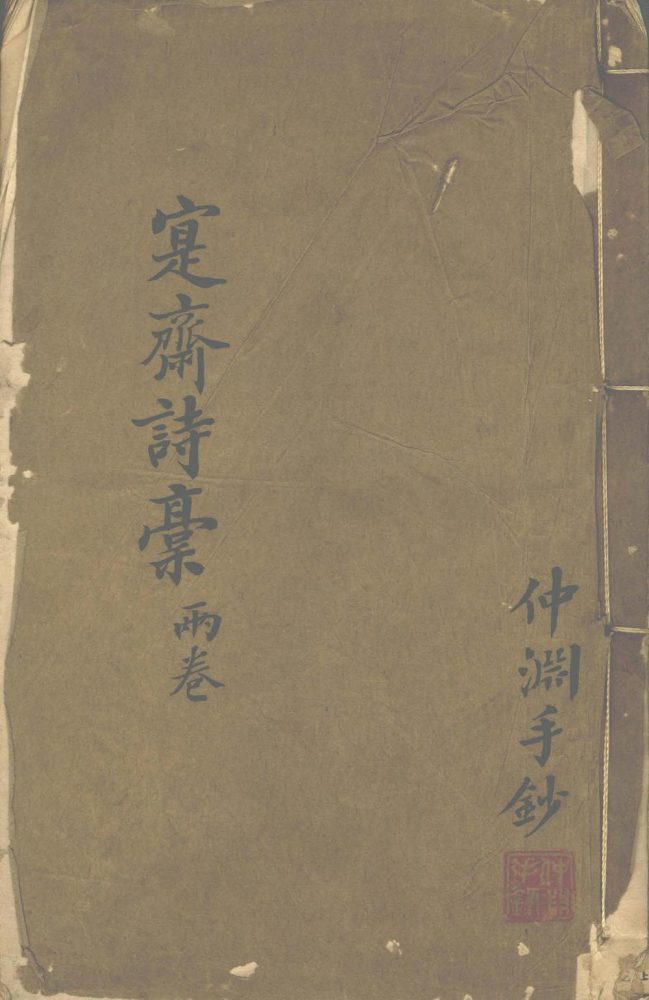 仲淵手鈔
寔齋詩稾 兩卷